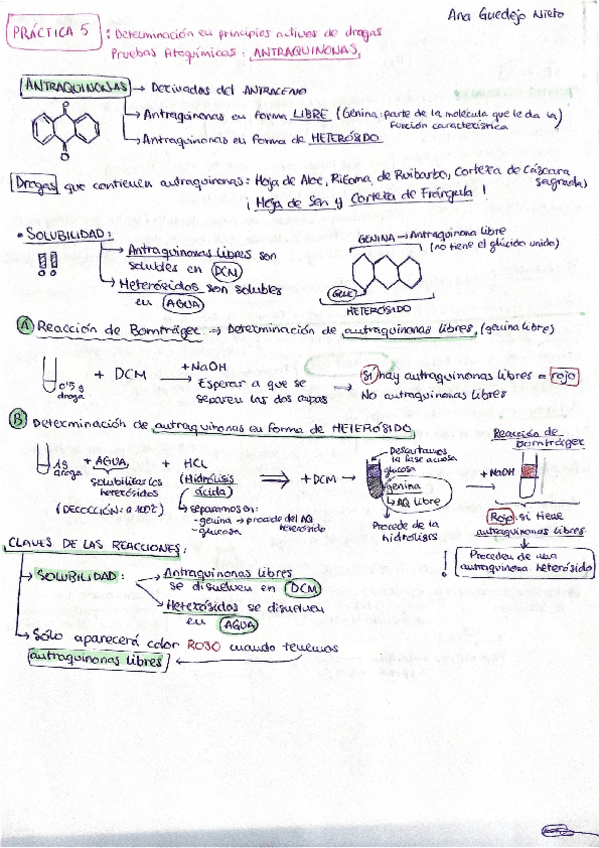 Ana Guedejo Nieto
PRÁCTICA 5 : Determinación en principios activos de drogas
Pruebas Fitoquímicas: ANTRAQUINONAS
ANTRAQUINONAS → Derivadas del ANTRACENO
→ Antraquinonas en forma LIBRE (Genina: parte de la molécula que le da la)
función característica
→ Antraquinonas en forma de HETERÓSIDO
O
O
Drogas que contienen antraquinonas: Hoja de Aloe, Rizoma de Ruibarbo, Corteza de Cáscara
sagrada)
¡ Hoja de Sen y Corteza de Frángula !
• SOLUBILIDAD:
!!
→ Antraquinonas libres son
solubles en DCM
→ Heterósidos son solubles
en AGUA
GENINA → Antraquinona libre
(no tiene el glúcido unido)
GLUC
HETERÓSIDO
A Reacción de Bornträger → Determinación de antraquinonas libres (genina libre)
0'5 g
droga
+ DCM
+NaOH
→ Esperar a que se
separen las dos capas
→ Sí hay antraquinonas libres = rojo
No antraquinonas libres
B Determinación de antraquinonas en forma de HETERÓSIDO
1g
droga
+ AGUA
solubilizar los
heterósidos
(DECOCCIÓN: a 100ºC)
+ HCL
(Hidrólisis
ácida)
↳ separamos en:
- genina → procede del AQ
heterósido
- glucosa
⇒ + DCM →
Descartamos
la fase acuosa
glucosa
genina
↳ AQ libre
Procede de la
hidrólisis
Reacción de
Bornträger
+ NaOH
Rojo: si tiene
antraquinonas libres
! Proceden de una
antraquinona heterósido
CLAVES DE LAS REACCIONES:
→ SOLUBILIDAD:
→ Antraquinonas libres
se disuelven en DCM
→ Heterósidos se disuelven
en AGUA
→ Sólo aparecerá color ROJO cuando tenemos
antraquinonas libres